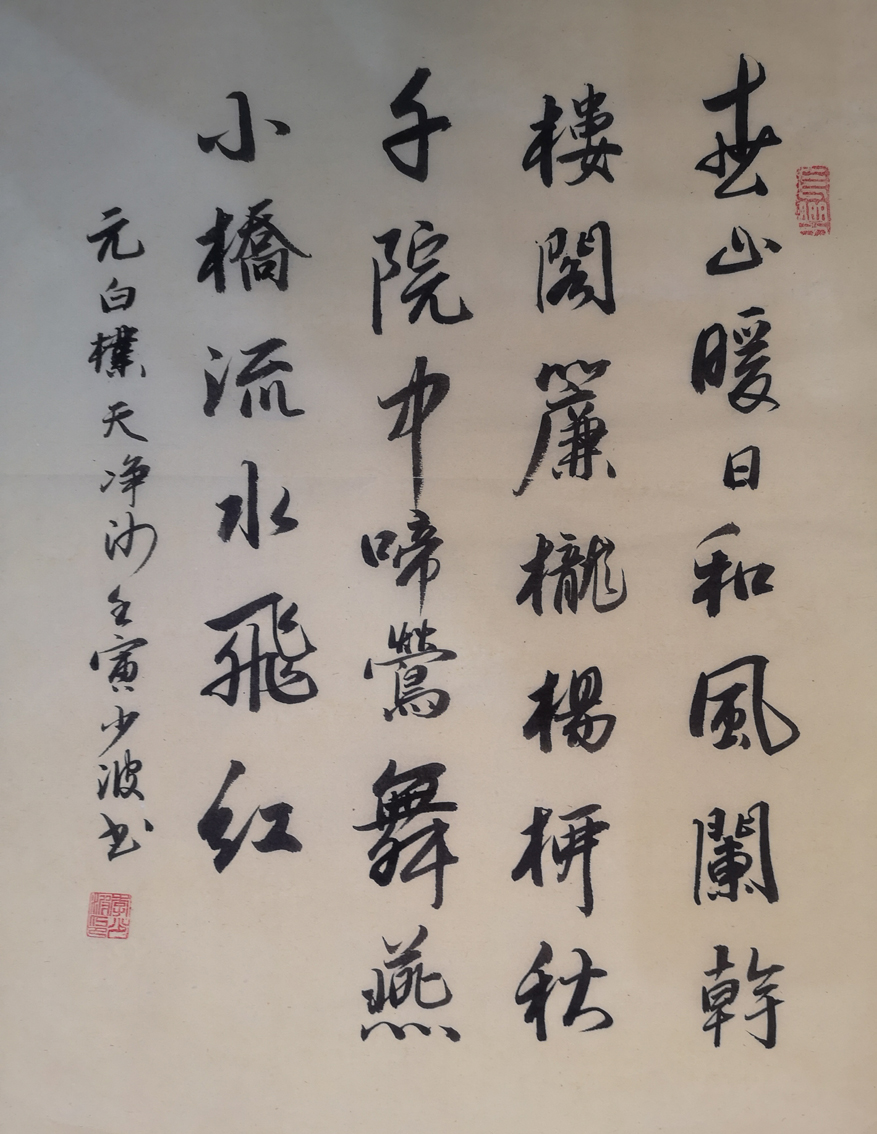 春山暖日和風闌幹
樓閣簾櫳楊柳秋
千院中啼鶯舞燕
小橋流水飛紅
元白樸天净沙壬寅少波书